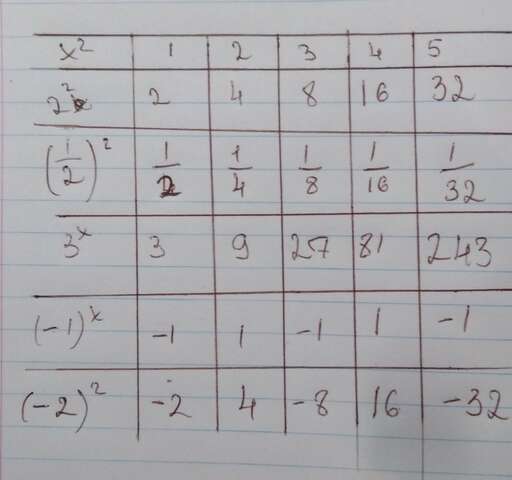 x² 1 2 3 4 5
2² 2 4 8 16 32
(1/2)² 1/2 1/4 1/8 1/16 1/32
3ˣ 3 9 27 81 243
(-1)ˣ -1 1 -1 1 -1
(-2)² -2 4 -8 16 -32